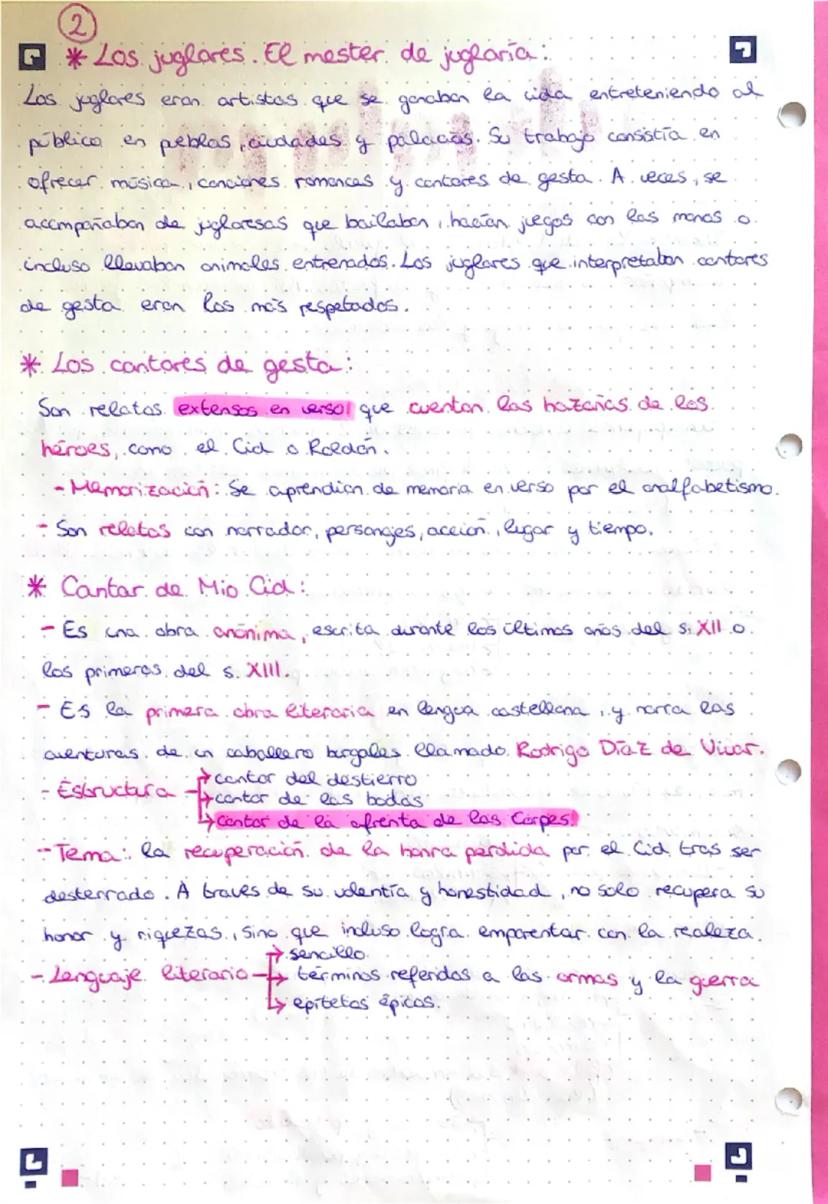 2
* Los juglares. El mester de juglaría:
Los juglares eran artistas que se ganaban la vida entreteniendo al
público en pueblos, ciudades y palacios. Su trabajo consistía en
ofrecer música, canciones romances y cantares de gesta. A veces, se
acompañaban de juglaresas que bailaban, hacían juegos con las manos o
incluso llevaban animales entrenados. Los juglares que interpretaban cantares
de gesta eran los más respetados.
* Los cantares de gesta:
Son relatos extensos en verso que cuentan las hazañas de los
héroes, como el Cid o Roldán.
- Memorización: Se aprendían de memoria en verso por el analfabetismo.
- Son relatos con narrador, personajes, acción, lugar y tiempo.
* Cantar de Mio Cid:
- Es una obra anónima, escrita durante los últimos años del s. XII o
los primeros del s. XIII.
- Es la primera obra literaria en lengua castellana, y narra las
aventuras de un caballero burgales llamado Rodrigo Díaz de Vivar.
→ cantar del destierro
- Estructura → cantar de las bodas
→ Cantar de la afrenta de las Corpes
- Tema: la recuperación de la honra perdida por el Cid tras ser
desterrado. A través de su valentía y honestidad, no solo recupera su
honor y riquezas, sino que incluso logra emparentar con la realeza.
→ sencillo
- Lenguaje literario → términos referidos a las armas y la guerra
→ epítetos épicos.